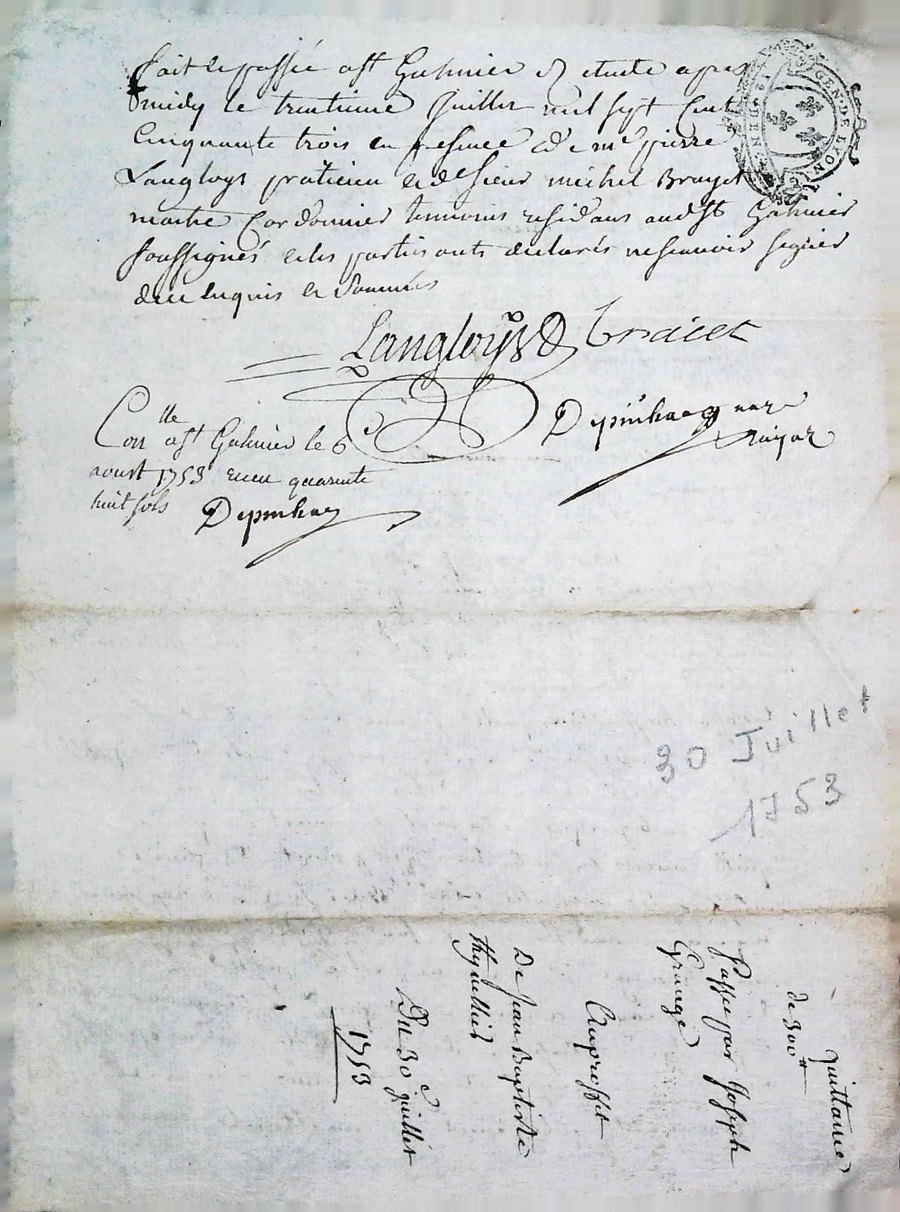 fait et passée a St Galmier & etude apres
midy le trentieme Juillet mil sept Cent
Cinquante trois en presence de me pierre
Langloys praticien et de Sieur michel Brayet
maitre Cordonnier temoins residans audt St Galmier
soussignés et les parties ont declarés ne scavoir signer
de ce enquis et sommés
Langloys Braiet
Depinhac nore
royal
Conlle a St Galmier le 6e
aoust 1753 receu quarente
huit sols Depinhac
GEN. DE LYON
30 Juillet
1753
quittance
de 300#
Passé par Joseph
Grange
Au proffit
De Jean Baptiste
thyvellier
Du 30e juillet
1753